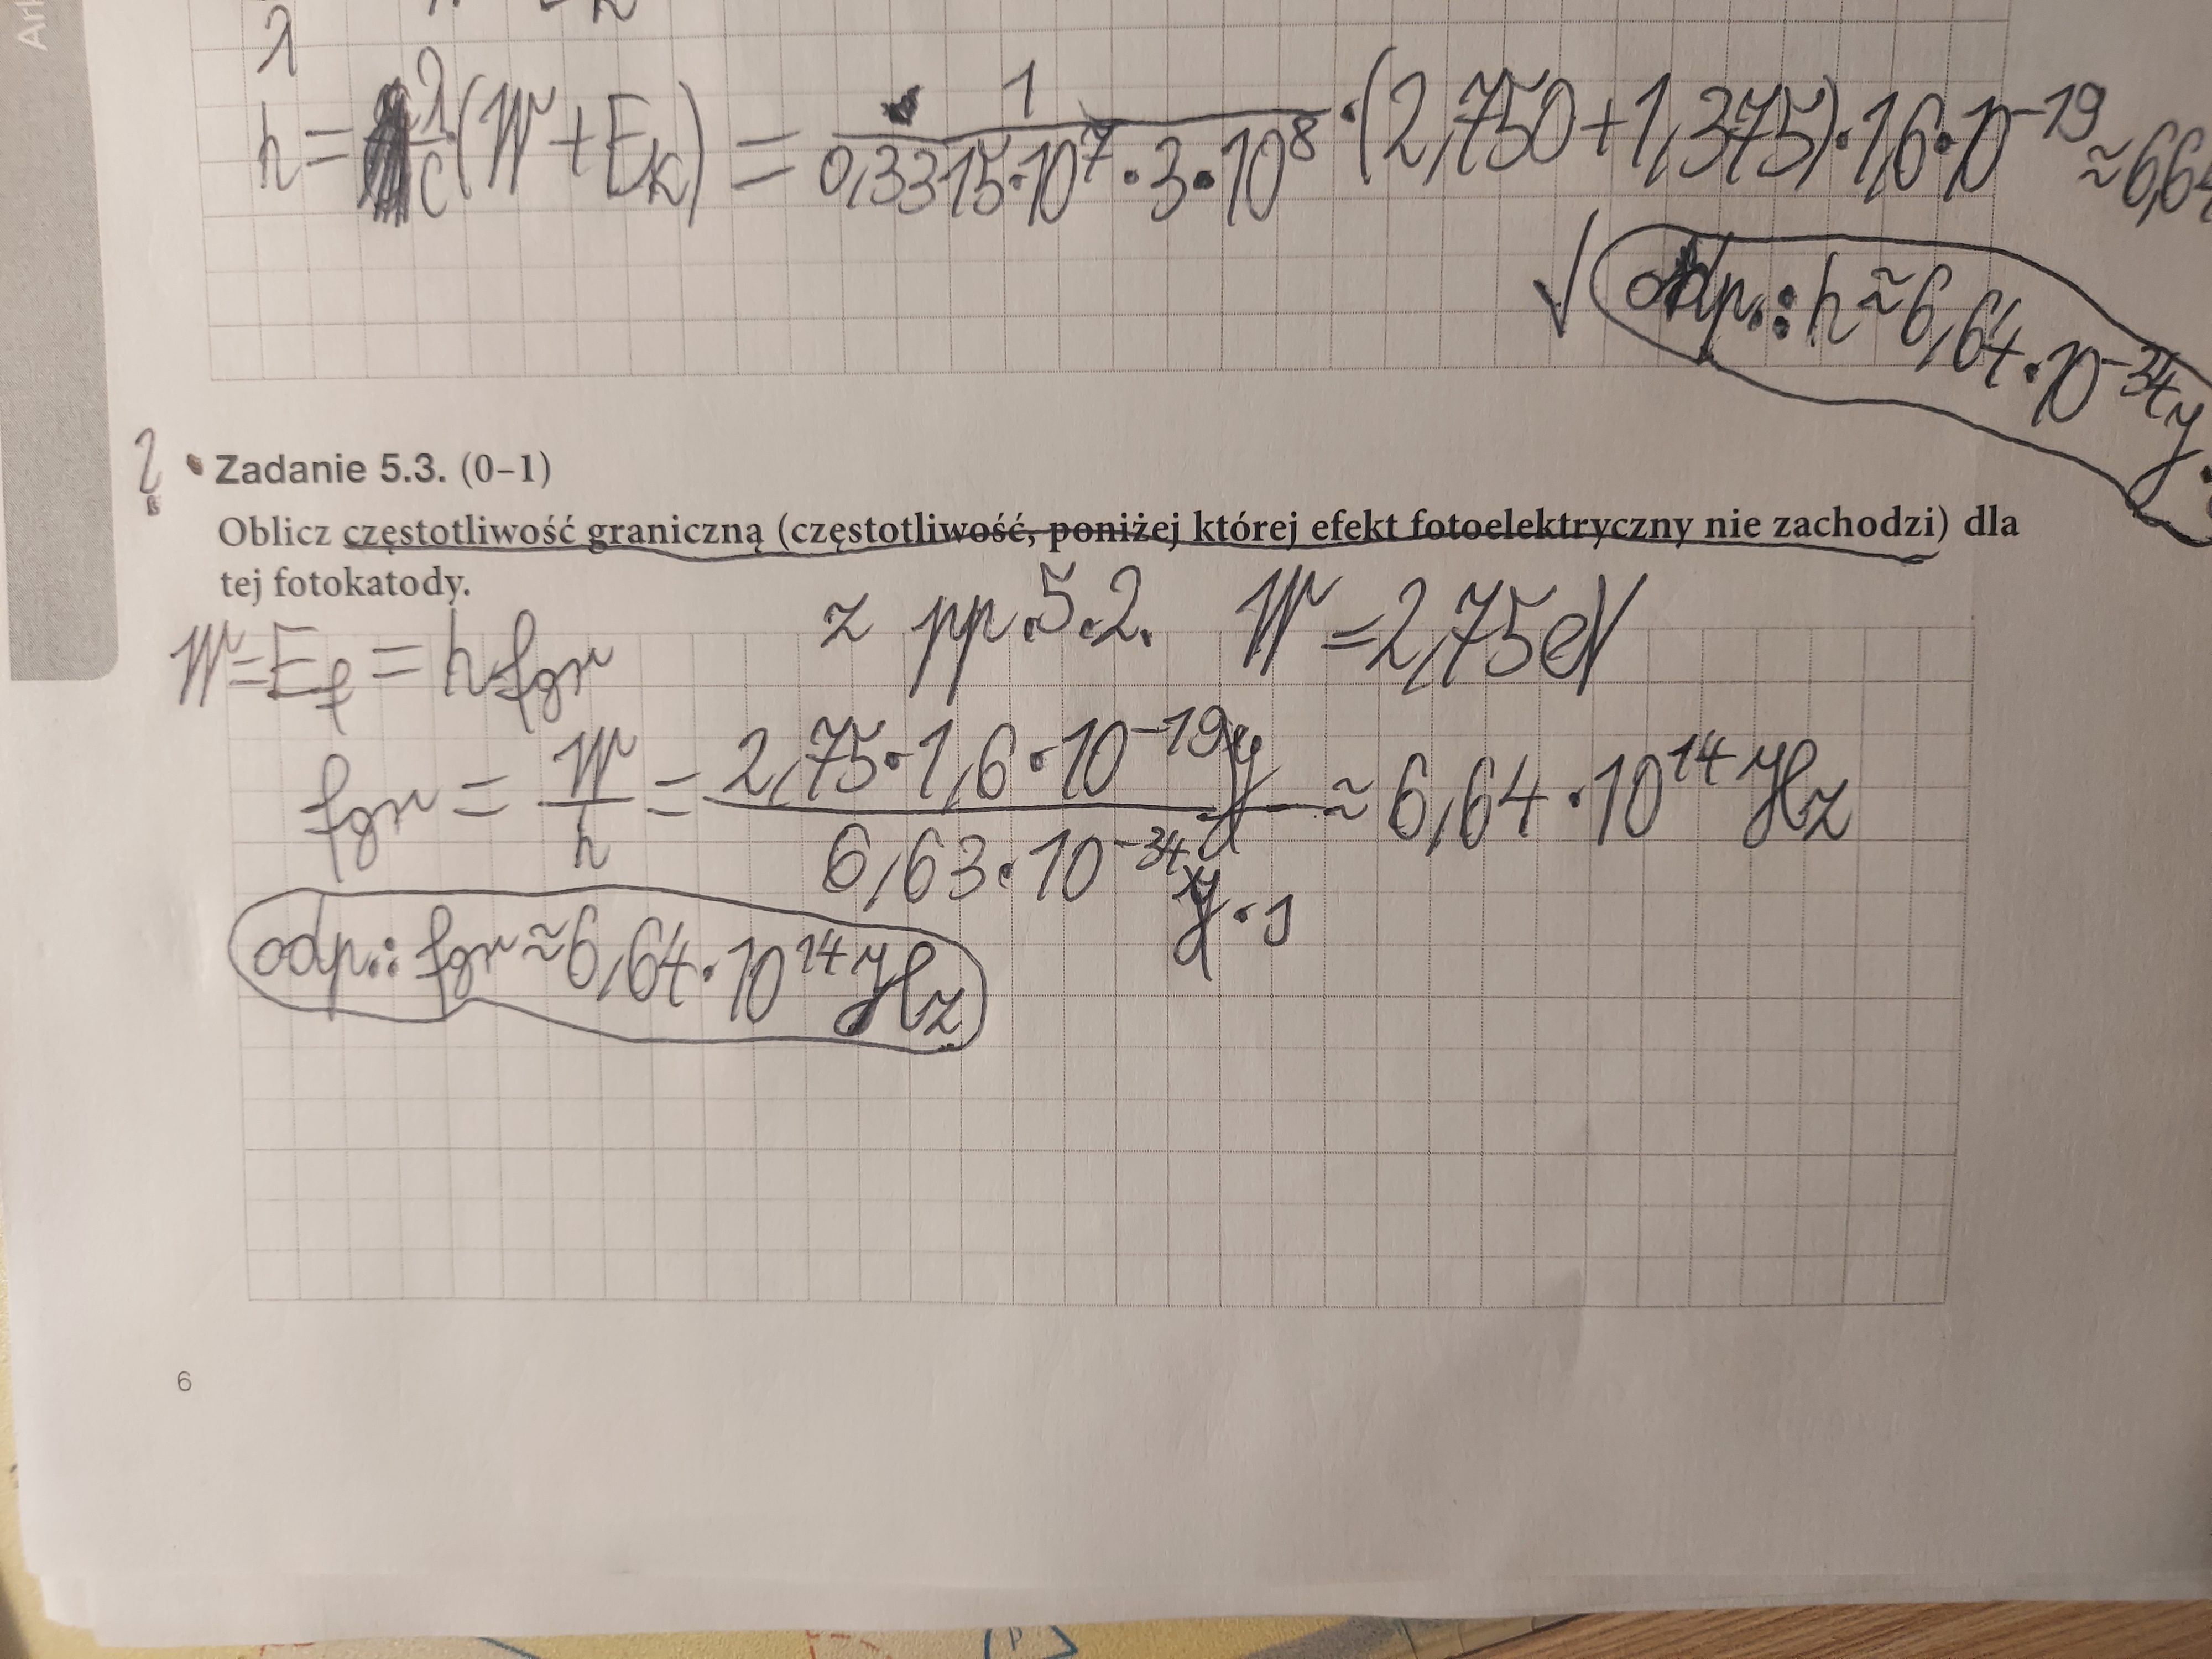 Ark
λ
h = λ/c (W + Ek) = 1/(0,3315·10⁷·3·10⁸) · (2,750+1,375)·1,6·10⁻¹⁹ ≈ 6,64
√ odp.: h ≈ 6,64·10⁻³⁴ J·
Zadanie 5.3. (0–1)
Oblicz częstotliwość graniczną (częstotliwość, poniżej której efekt fotoelektryczny nie zachodzi) dla
tej fotokatody.
z pp. 5.2. W = 2,75 eV
W = Ef = h·fgr
fgr = W/h = (2,75·1,6·10⁻¹⁹ J)/(6,63·10⁻³⁴ J·s) ≈ 6,64·10¹⁴ Hz
odp.: fgr ≈ 6,64·10¹⁴ Hz
6
P